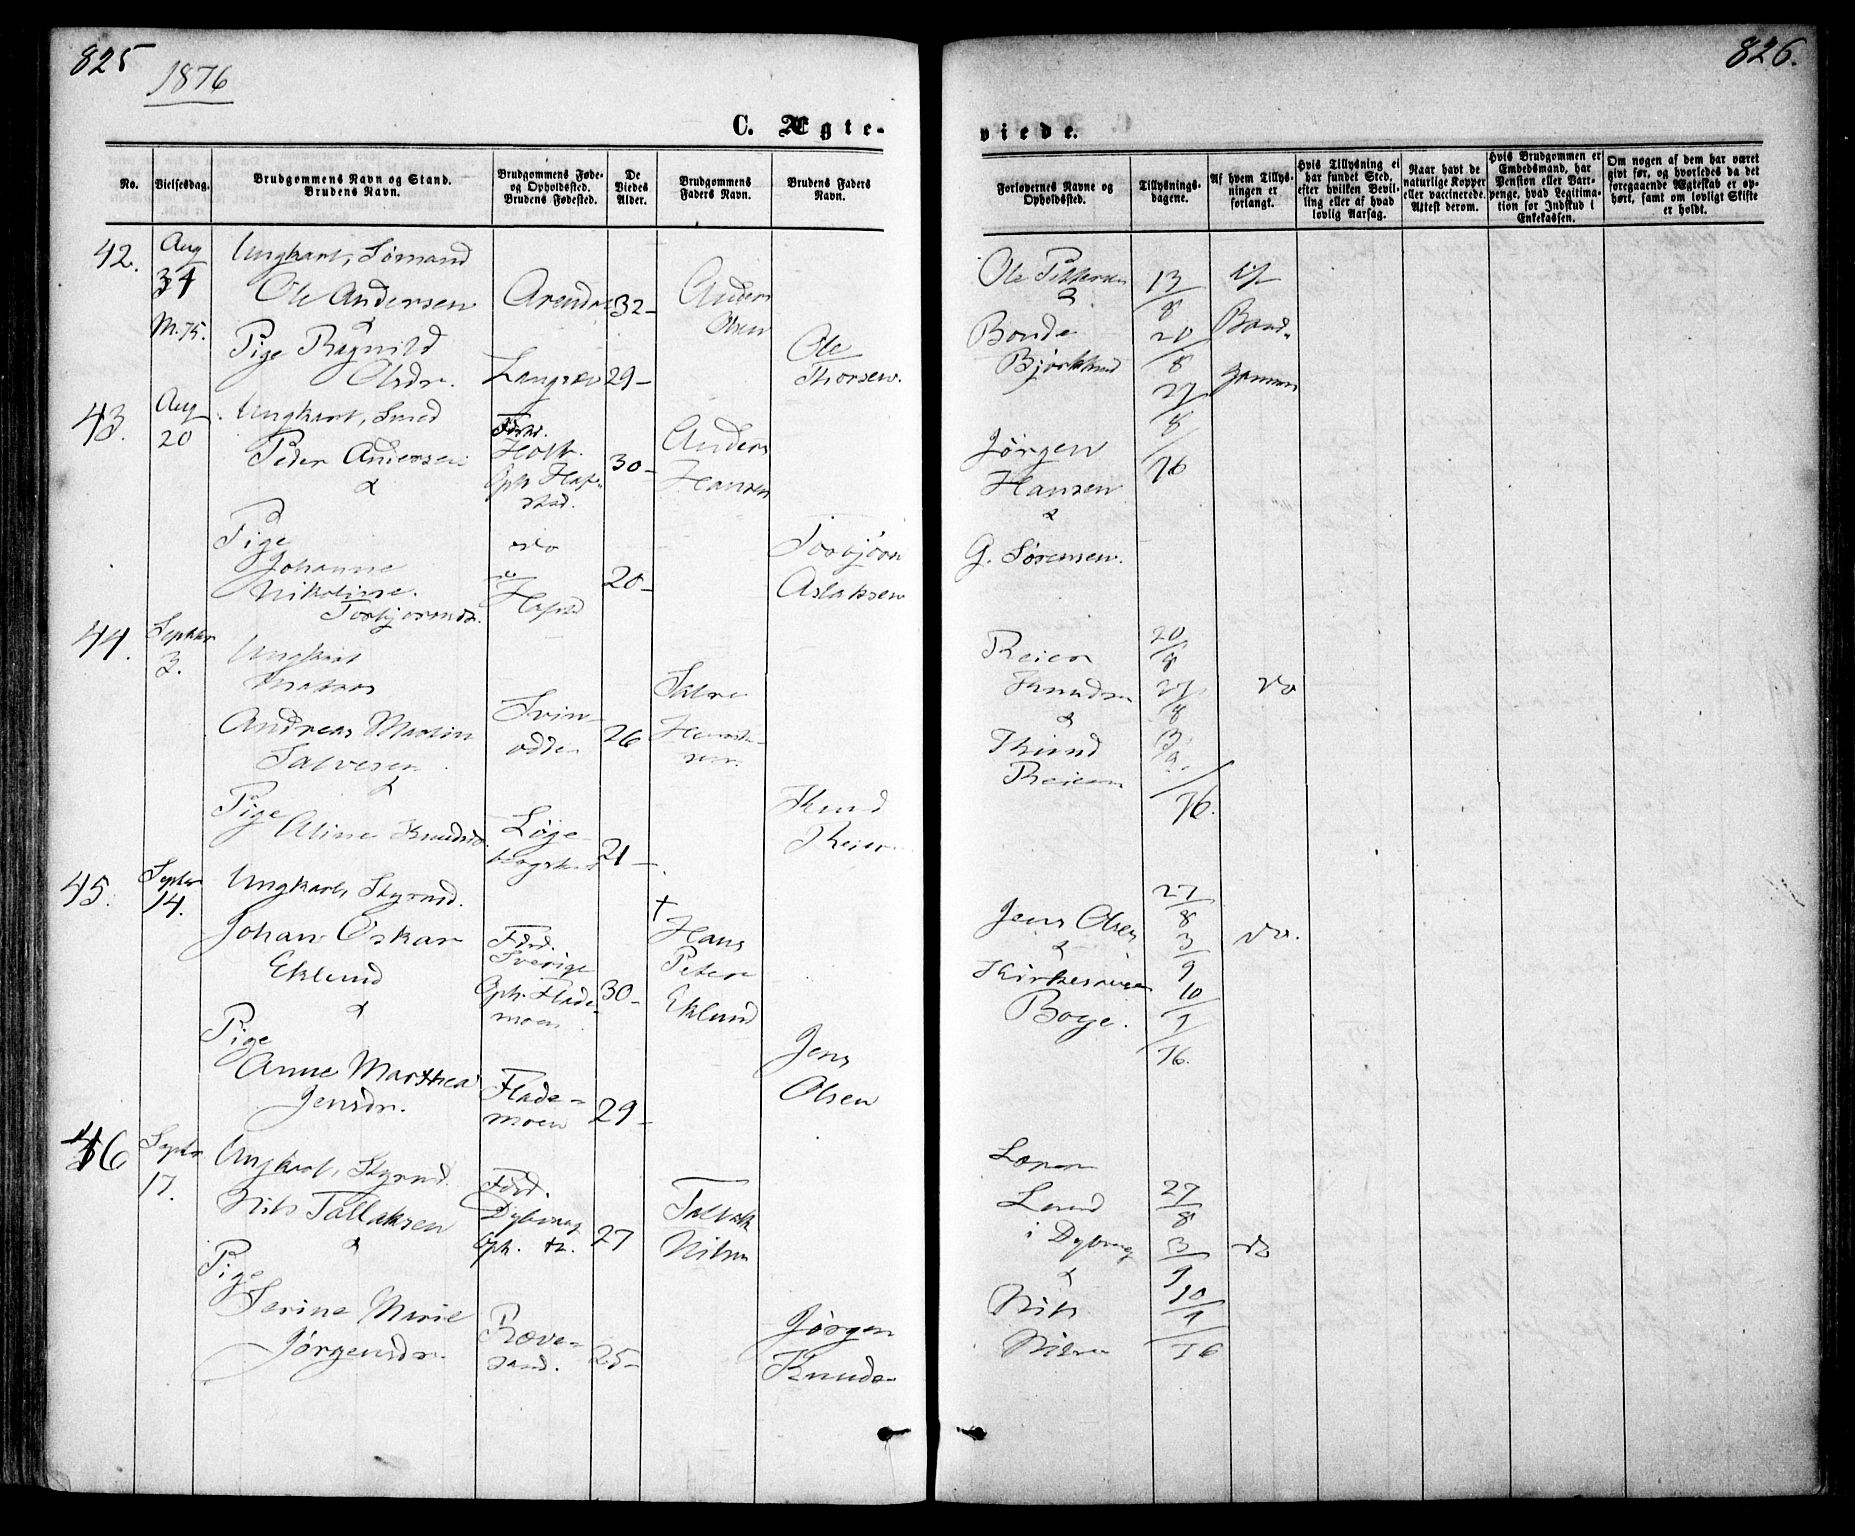 825
1876
C. Ægte-
No.
Vielsesdag.
Brudgommens Navn og Stand.
Brudens Navn.
Brudgommens Føde-
og Opholdssted.
Brudens Fødested.
De
Viedes
Alder.
Brudgommens
Faders Navn.
Brudens Faders
Navn.
42.
Aug
M. 75.
Ungkarl, Sømand
Ole Andersen
Arendal
32-
Anders
Olsen
&
Pige Ragnild
Olsdr.
Langsæv
29-
Ole
Thorsen.
43.
Aug
20
Ungkarl, Smed
Peder Andersen
&
Fdsd.
Holt.
Oph. Hafs-
stad.
30-
Anders
Hansen
Pige
Johanne
Nikoline
Torbjørnsdr.
20-
Torbjörn
Aslaksen
44.
Septbr
3.
Ungkarl
Matros
Andreas Martin
Salvesen
&
Svin-
odden
26
Salve
Pige
Aline Knudsdr
21-
Knud
Reier
45.
Septbr
14.
Ungkarl, Styrmd.
Johan Oskar
Eklund
&
Fdsd.
Sverige
Oph. Flade-
moen
30-
†
Hans
Peter
Eklund
Pige
Anne Marthea
Jensdr.
Flade-
moen
29-
Jens
Olsen
46
Septbr
17.
Ungkarl, Styrmd.
Nils Tallaksen
&
Fdsd.
Dybvaag
Oph. do.
27
Tallak
Nilsen
Pige
Serine Marie
Jørgensdr.
Ræve-
sand.
25-
Jørgen
Knuds-
826.
viede.
Forlovernes Navne og
Opholdssted.
Tillysnings-
dagene.
Af hvem Tillys-
ningen er
forlangt.
Hvis Tillysning ei
har fundet Sted,
efter hvilken Bevil-
ling eller af hvad
lovlig Aarsag.
Naar havt de
naturlige Kopper
eller vaccinerede.
Attest derom.
Hvis Brudgommen er
Embedsmand, har
Pension eller Vart-
penge, hvad Legitima-
tion for Indskud i
Enkekassen.
Om nogen af dem har været
givt før, og hvorledes da det
foregaaende Ægteskab er op-
hørt, samt om lovligt Skifte
er holdt.
Ole Pettersen
&
Bonde
Bjorklund
13/8
20/8
27/8
76
af
Brud-
gommen
Jörgen
Hansen
&
G. Sørensen.
Reier
Knudsen
&
Knud
Reiersen
20/8
27/8
3/9
76.
do
Jens Olsen
&
Kirkesanger
Boye.
27/8
3/9
10/9
76.
do.
i Dybvaag
&
Nils
Nilsen
27/8
3/9
10/9
76
do